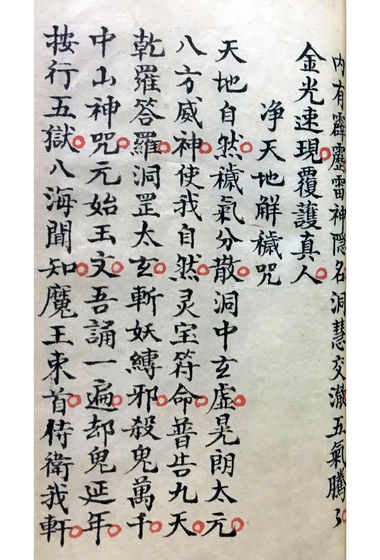 内有霹靂雷神隐名洞慧交澈五氣騰々
金光速現覆護真人
净天地解穢咒
天地自然穢氣分散洞中玄虚晃朗太元
八方威神使我自然灵宝符命普告九天
乾羅答羅洞罡太玄斬妖縛邪殺鬼萬千
中山神咒元始玉文吾誦一遍却鬼延年
按行五獄八海聞知魔王束首侍衛我軒